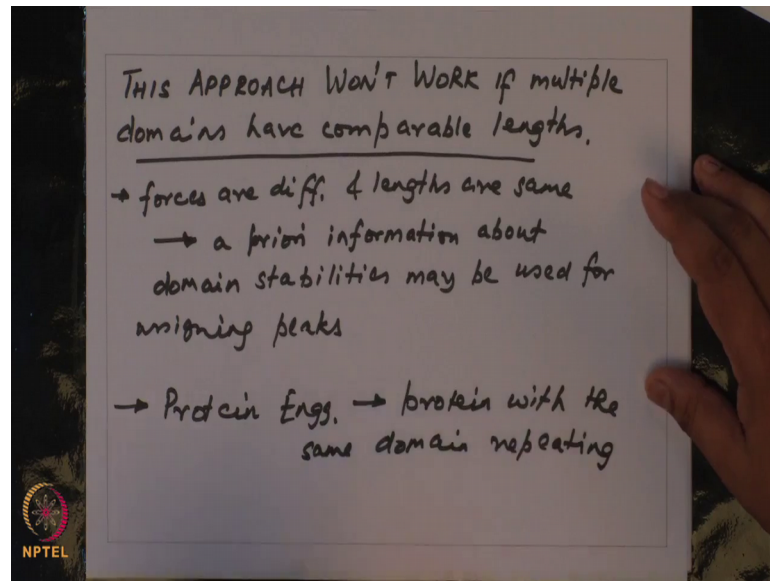 THIS APPROACH WON'T WORK if multiple
domains have comparable lengths.
→ forces are diff. & lengths are same
→ a priori information about
domain stabilities may be used for
assigning peaks
→ Protein Engg. → protein with the
same domain repeating
NPTEL